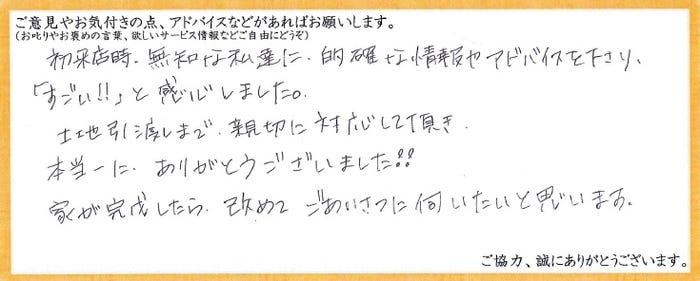 ご意見やお気付きの点、アドバイスなどがあればお願いします。
(お叱りやお褒めの言葉、欲しいサービス情報などご自由にどうぞ)
初来店時、無知な私達に、的確な情報やアドバイスを下さり、
「すごい!!」と感心しました。
土地引渡しまで、親切に対応して頂き、
本当に、ありがとうございました!!
家が完成したら、改めて ごあいさつに伺いたいと思います。
ご協力、誠にありがとうございます。